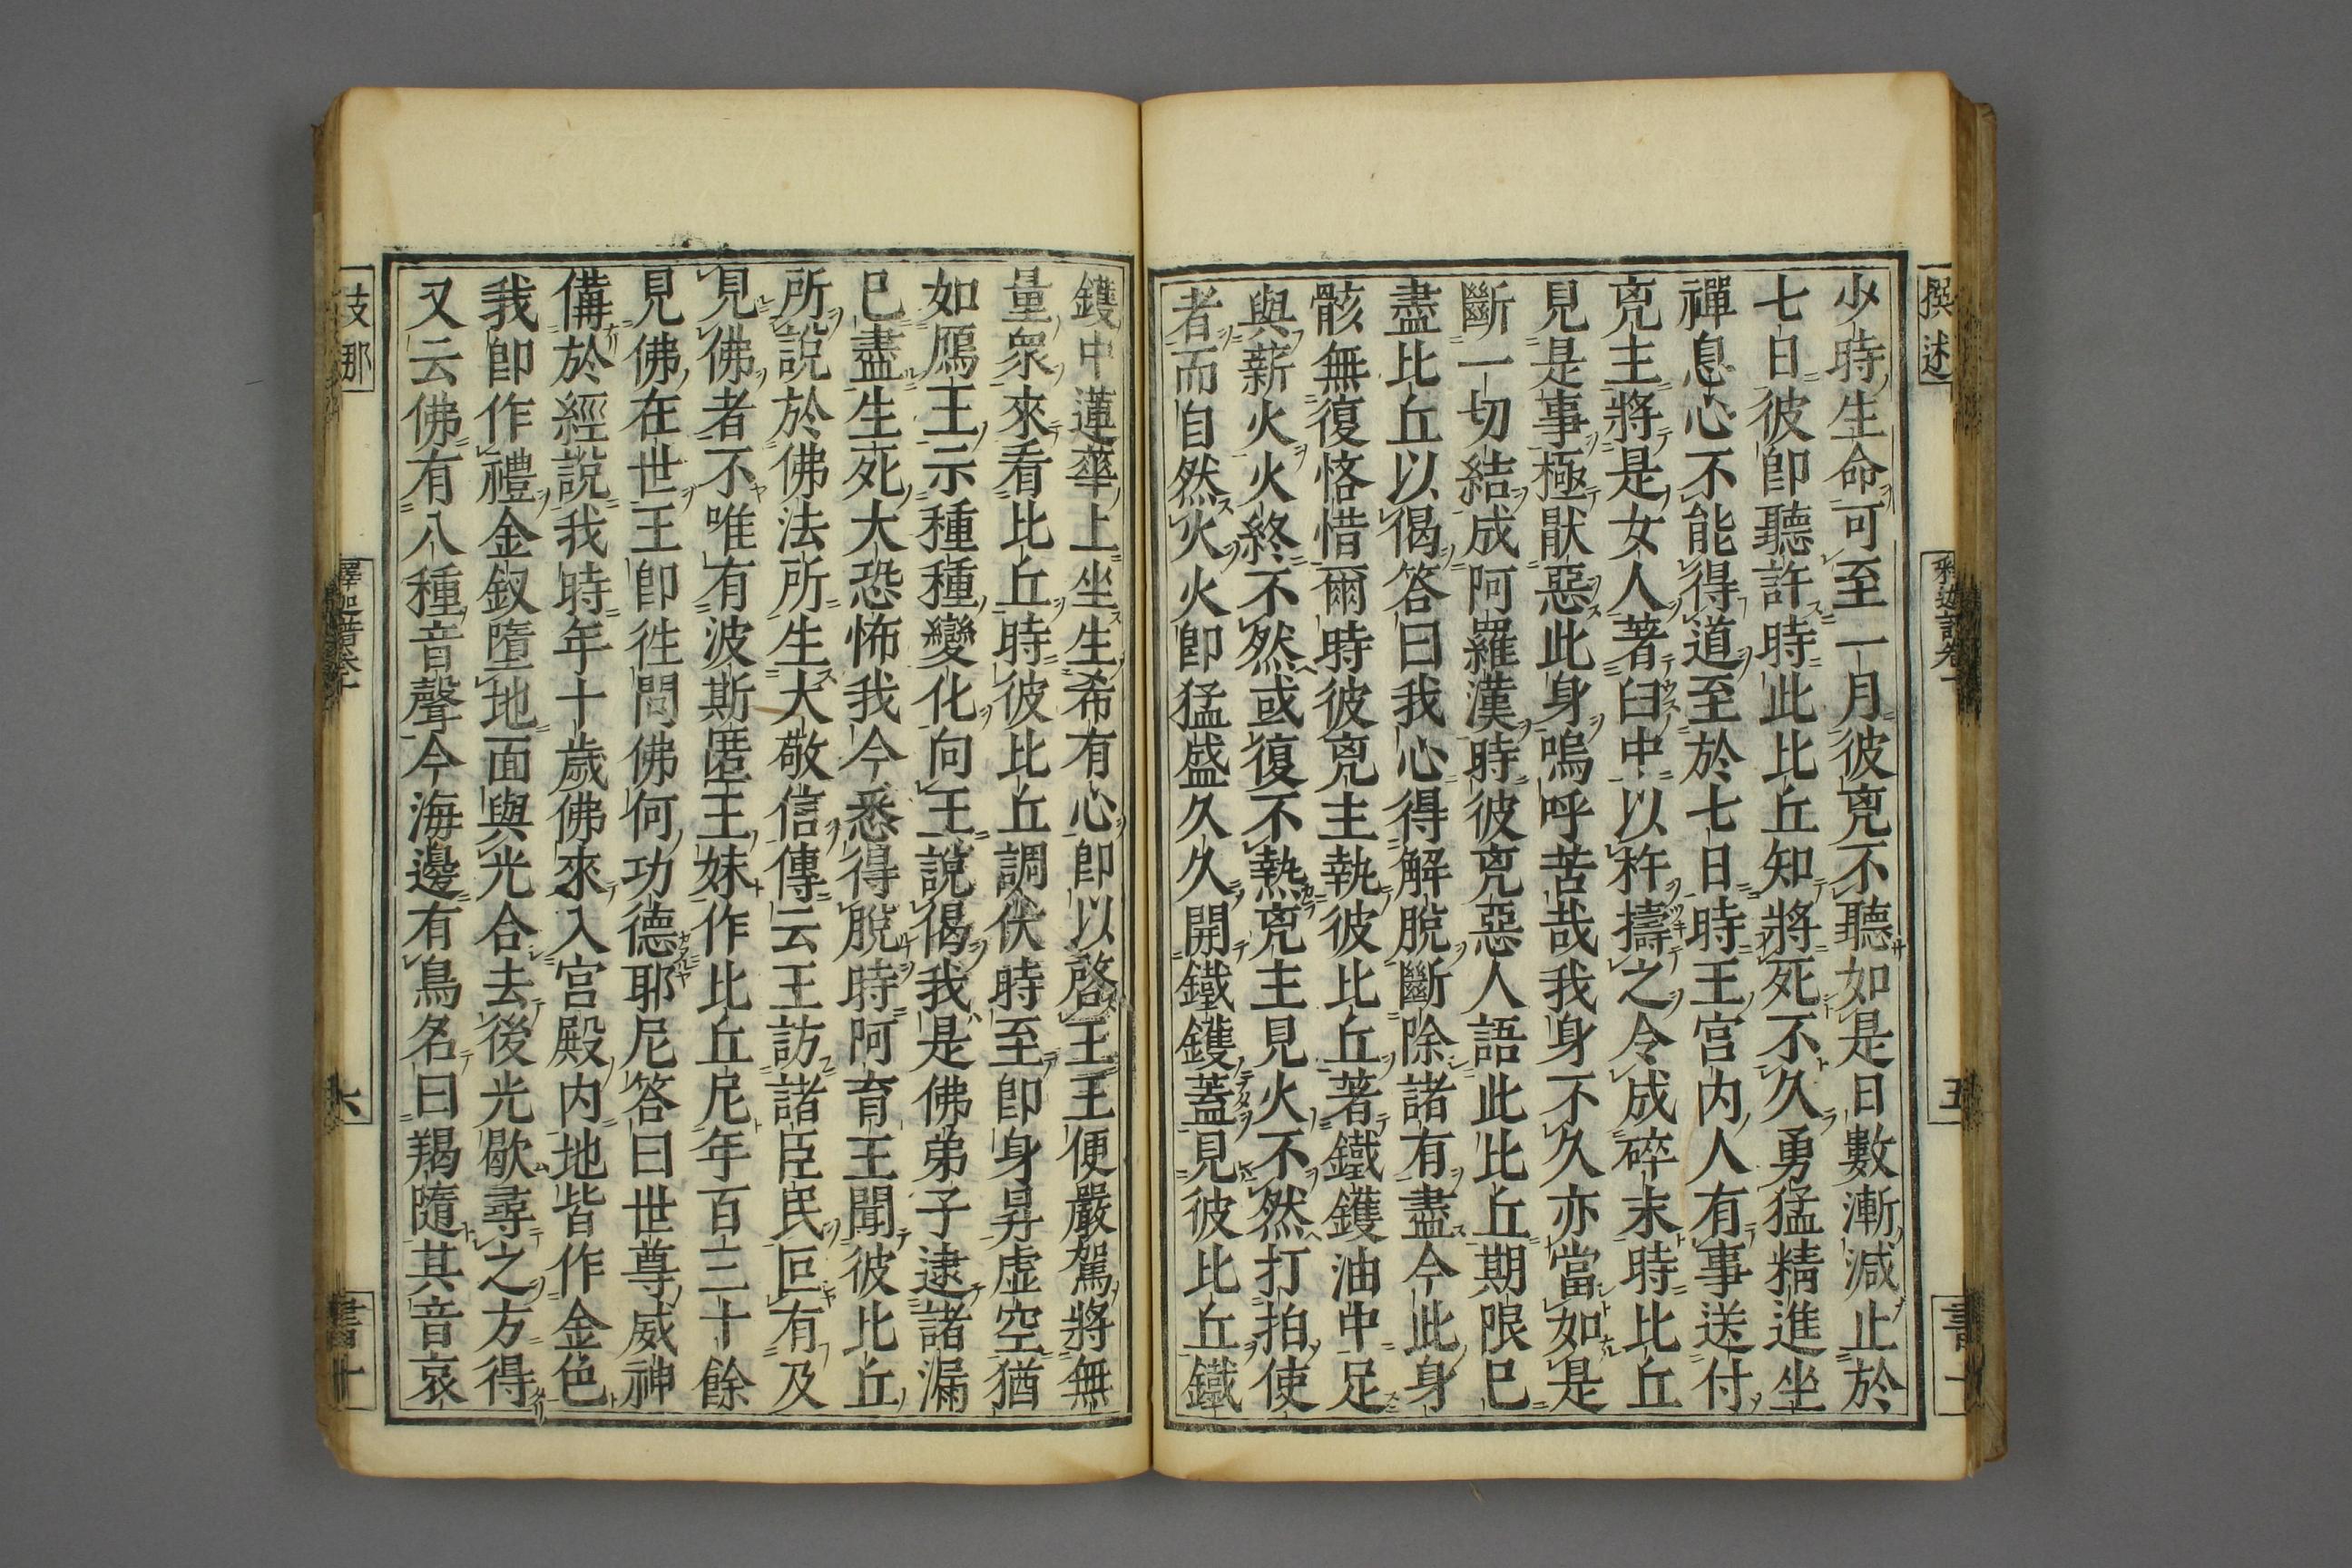 撰述
少時生命可至一月彼兇不聽如是日數漸減止於
七日彼卽聽許時此比丘知將死不久勇猛精進坐
禪息心不能得道至於七日時王宮内人有事送付
兇主將是女人著臼中以杵擣之令成碎末時比丘
見是事極猒惡此身嗚呼苦哉我身不久亦當如是
斷一切結成阿羅漢時彼兇惡人語此比丘期限巳
盡比丘以偈答曰我心得解脫斷除諸有盡今此身
骸無復恡惜爾時彼兇主執彼比丘著鐵鑊油中足
與薪火火終不然或復不熱兇主見火不然打拍使
者而自然火火卽猛盛久久開鐵鑊蓋見彼比丘鐵
鑊中蓮華上坐生希有心卽以啓王王便嚴駕將無
量衆來看比丘時彼比丘調伏時至卽身昇虛空猶
如鴈王示種種變化向王說偈我是佛弟子逮諸漏
巳盡生死大恐怖我今悉得脫時阿育王聞彼比丘
所說於佛法所生大敬信傳云王訪諸臣民叵有及
見佛者不唯有波斯匿王妹作比丘尼年百三十餘
見佛在世王卽徃問佛何功德耶尼答曰世尊威神
備於經說我時年十歲佛來入宮殿内地皆作金色
我卽作禮金釵墮地面與光合去後光歇尋之方得
又云佛有八種音聲今海邊有鳥名曰羯隨其音哀